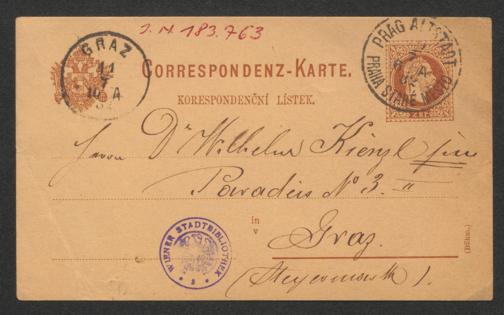 J. N 183.763
GRAZ
11
10 A
PRAG ALTSTADT
PRAHA STARÉ MĚSTO
CORRESPONDENZ-KARTE.
KORESPONDENČNÍ LÍSTEK.
Herrn Dr Wilhelm Kienzl jun
Paradeis No 3. II
in
v
Graz
(Steyermark).
(Böhm.)
WIENER STADTBIBLIOTHEK